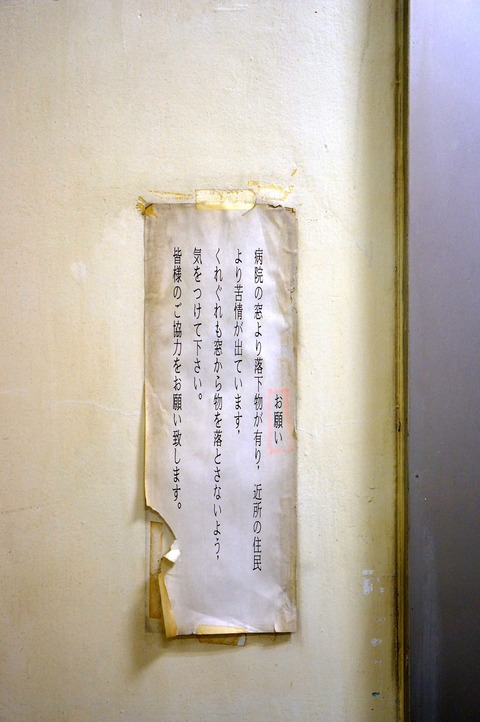 お願い
病院の窓より落下物が有り， 近所の住民
より苦情が出ています，
くれぐれも窓から物を落とさないよう，
気をつけて下さい。
皆様のご協力をお願い致します。